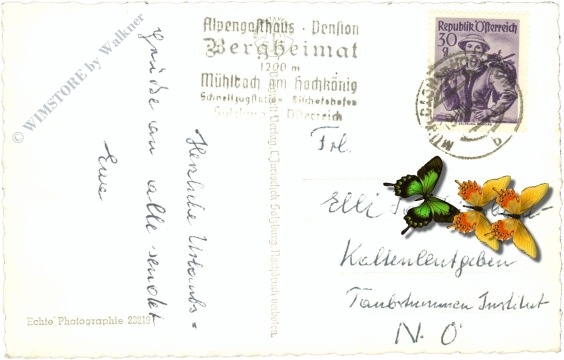 Alpengasthaus - Pension
Bergheimat
1200 m
Mühlbach am Hochkönig
Schnellzugstation Bischofshofen
Salzburg - Österreich
Republik Österreich
30
g
MÜHLBACH
b
© WIMSTORE by Walkner
Herzliche Urlaubs=
grüße an alle sendet
Frl.
Elli
Kaltenleutgeben
Taubstummen Institut
N. Ö
Verlag Cosy, Salzburg. Nachdruck verboten.
Echte Photographie 23219